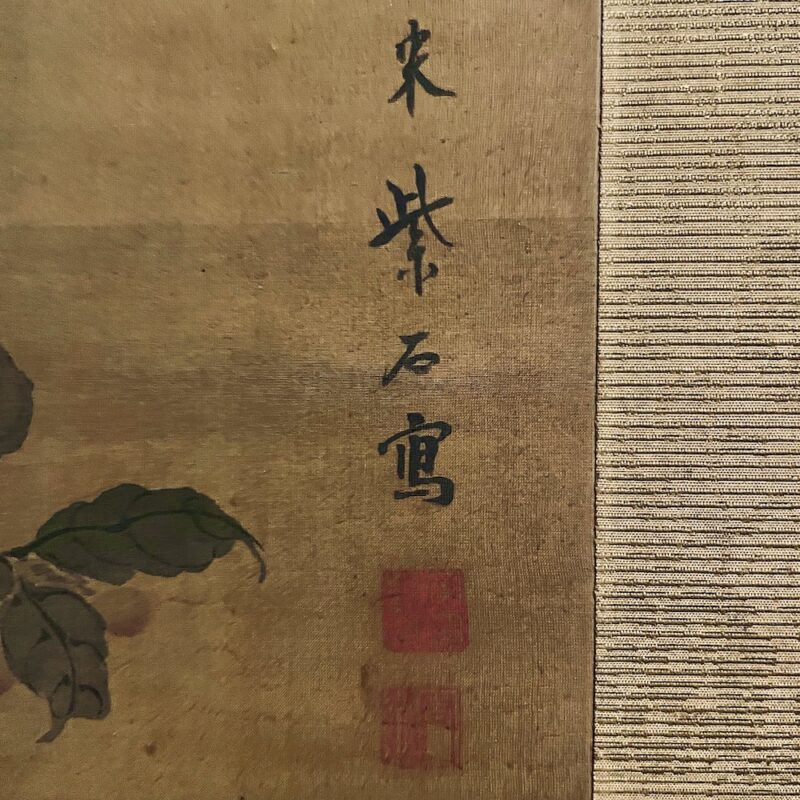 宋紫石寫